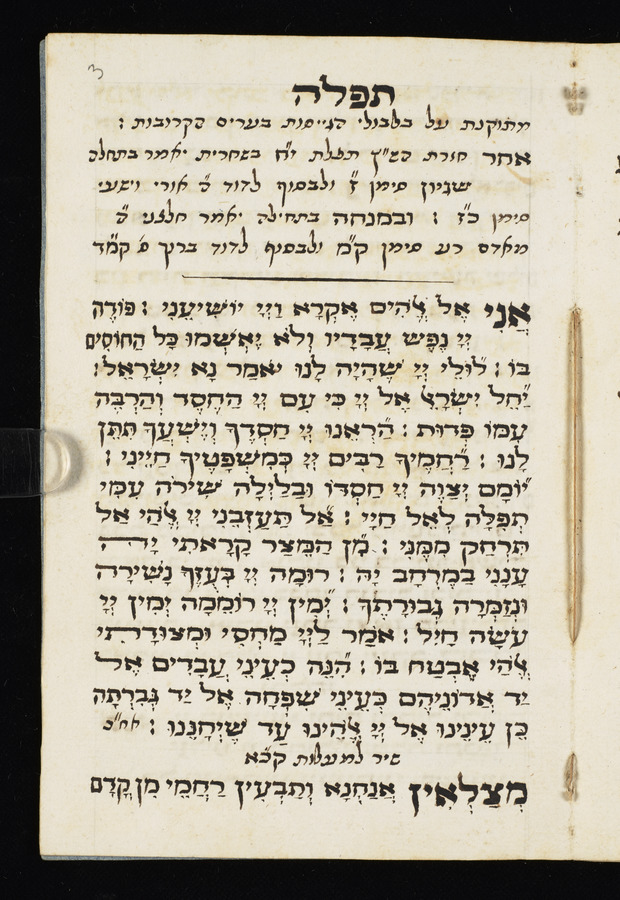 תפלה
מתוקנת על בלבולי הגייסות בערים הקרובות :
אחר חזרת הש״ץ תפלת י״ח בשחרית יאמר בתחלה
שגיון סימן ז̈ ולבסוף לדוד ה̈ אורי וישעי
סימן כ״ז : ובמנחה בתחילה יאמר ה̈
סימן ק״מ ולבסוף לדוד ברוך ס׳ קמ״ד
אֲנִי אֶל אֱלֹהִים אֶקְרָא וַיְיָ יוֹשִׁיעֵנִי : פּוֹדֶה
יְיָ נֶפֶשׁ עֲבָדָיו וְלֹא יֶאְשְׁמוּ כָּל הַחוֹסִים
בּוֹ : לוּלֵי יְיָ שֶׁהָיָה לָנוּ יֹאמַר נָא יִשְׂרָאֵל :
יַחֵל יִשְׂרָאֵל אֶל יְיָ כִּי עִם יְיָ הַחֶסֶד וְהַרְבֵּה
עִמּוֹ פְדוּת : הַרְאֵנוּ יְיָ חַסְדֶּךָ וְיֶשְׁעֲךָ תִּתֶּן
לָנוּ : רַחֲמֶיךָ רַבִּים יְיָ כְּמִשְׁפָּטֶיךָ חַיֵּינִי :
יוֹמָם יְצַוֶּה יְיָ חַסְדּוֹ וּבַלַּיְלָה שִׁירֹה עִמִּי
תְּפִלָּה לְאֵל חַיָּי : אַל תַּעַזְבֵנִי יְיָ אֱלֹהַי אַל
תִּרְחַק מִמֶּנִּי : מִן הַמֵּצַר קָרָאתִי יָהּ
עָנָנִי בַמֶּרְחָב יָהּ : רוּמָה יְיָ בְּעֻזֶּךָ נָשִׁירָה
וּנְזַמְּרָה גְּבוּרָתֶךָ : יְמִין יְיָ רוֹמֵמָה יְמִין יְיָ
עֹשָׂה חָיִל : אֹמַר לַיְיָ מַחְסִי וּמְצוּדָתִי
אֱלֹהַי אֶבְטַח בּוֹ : הִנֵּה כְעֵינֵי עֲבָדִים אֶל
יַד אֲדוֹנֵיהֶם כְּעֵינֵי שִׁפְחָה אֶל יַד גְּבִרְתָּהּ
כֵּן עֵינֵינוּ אֶל יְיָ אֱלֹהֵינוּ עַד שֶׁיְּחָנֵּנוּ : אח״כ
שיר למעלות קכ״א
מְצַלְאִין אֲנַחְנָא וְתַבְעִין רַחֲמֵי מִן קֳדָם